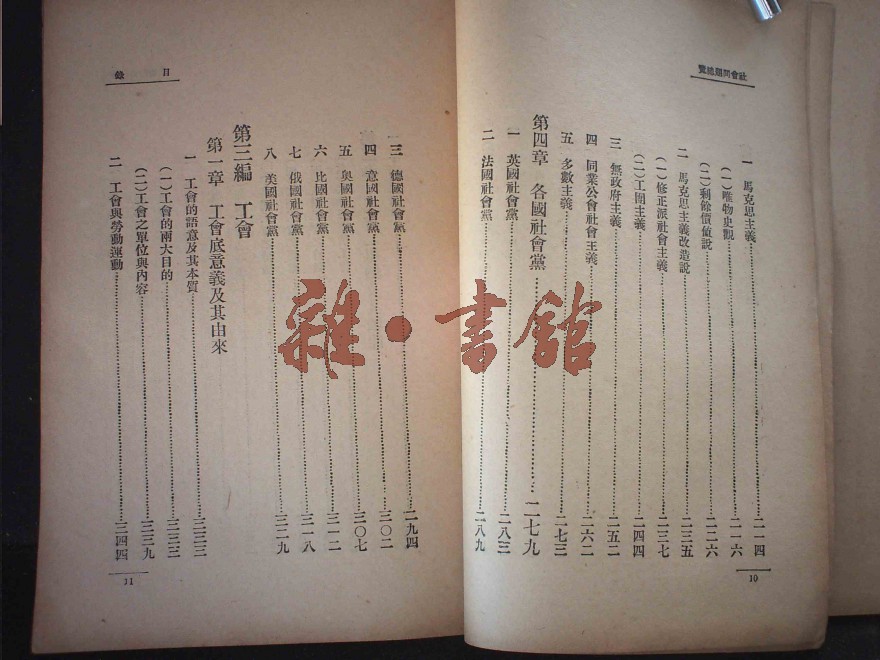 社會問題總覽
一 馬克思主義……二一四
(一)唯物史觀……二一六
(二)剩餘價値說……二二六
二 馬克思主義改造說……二三五
(一)修正派社會主義……二三七
(二)工團主義……二四四
三 無政府主義……二五二
四 同業公會社會主義……二六二
五 多數主義……二七三
第四章 各國社會黨……二七九
一 英國社會黨……二八三
二 法國社會黨……二八九
10
目錄
三 德國社會黨……二九四
四 意國社會黨……三〇二
五 奥國社會黨……三〇七
六 比國社會黨……三一二
七 俄國社會黨……三一八
八 美國社會黨……三二九
第三編 工會
第一章 工會底意義及其由來
一 工會的語意及其本質……三三三
(一)工會的兩大目的……三三三
(二)工會之單位與內容……三三九
二 工會與勞動運動……三四四
11
雜·書館